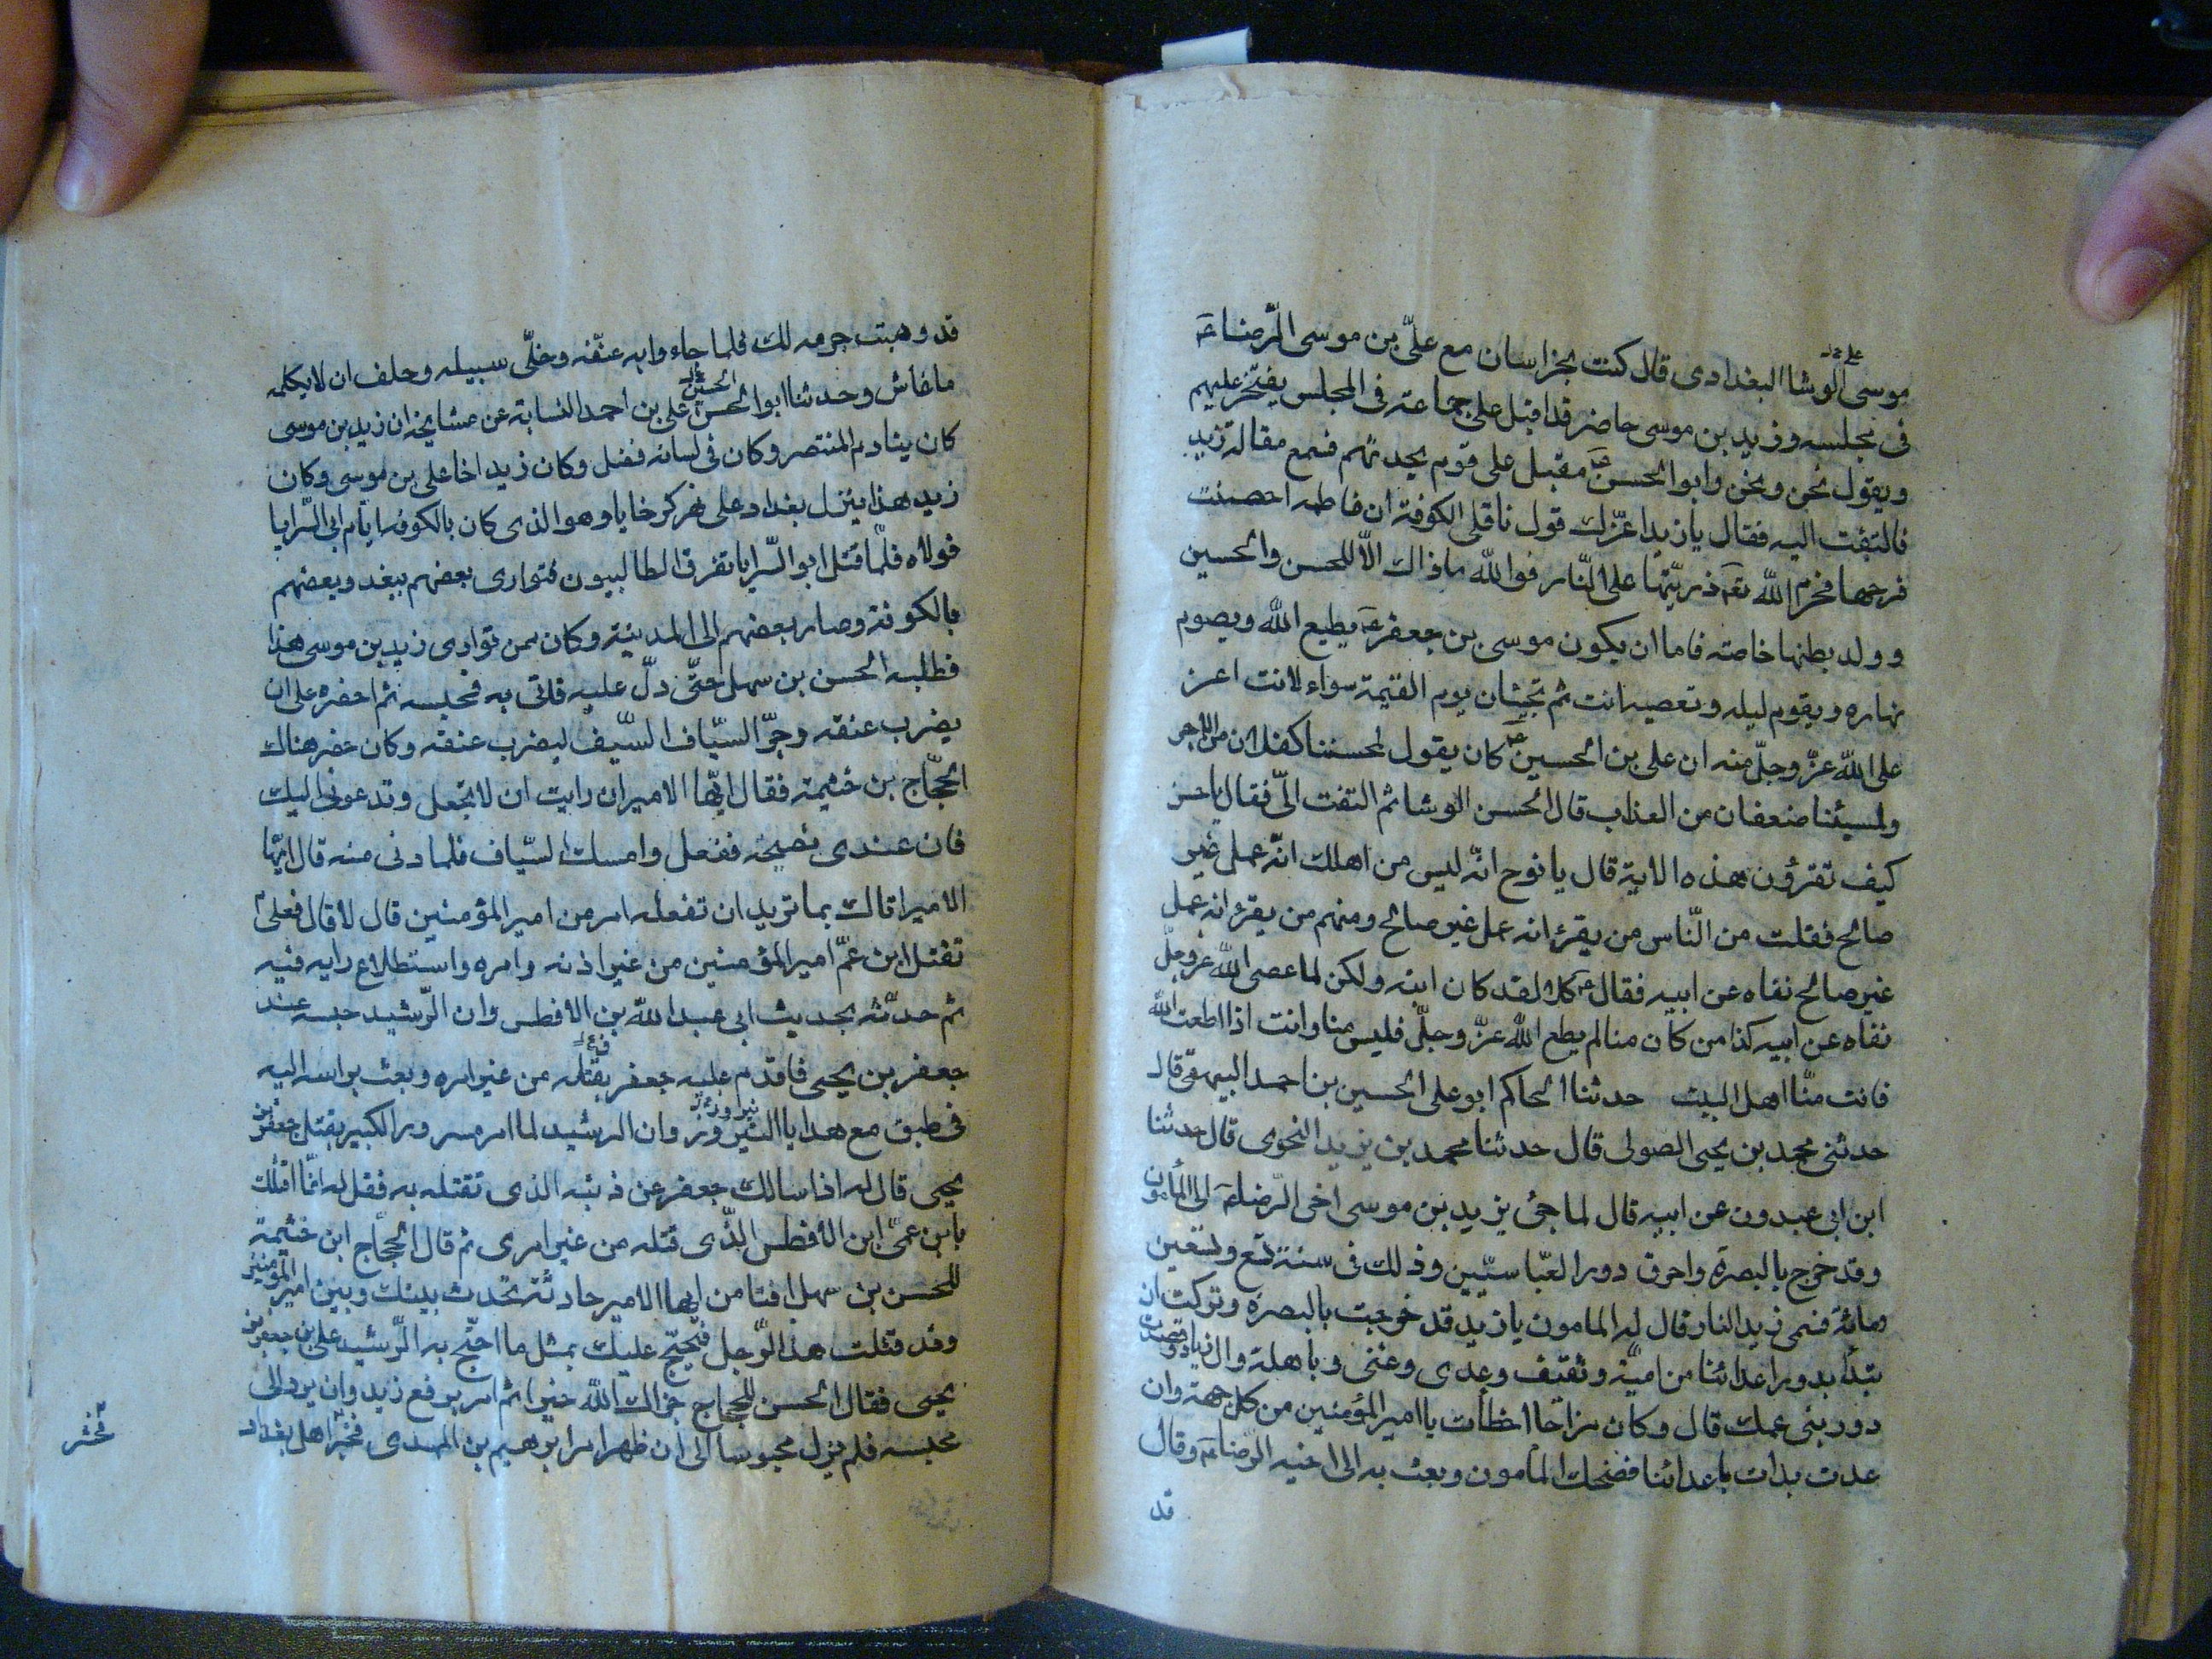 موسى الوشا البغدادى قال كنت بخراسان مع علىّ بن موسى الرّضا عَ
على خـ
فى مجلسه وزيد بن موسى حاضر قد اقبل على جماعة فى المجلس يفتخر عليهم
ويقول نحن ونحن وابو الحسن عَ مقبل على قوم يحدثهم فسمع مقالة زيد
فالتفت اليه فقال يا زيد اغرّك قول ناقلى الكوفة ان فاطمه احصنت
فرجها فحرم اللّٰه تعَ ذريّتها على النّار فو اللّٰه ما ذاك الّا للحسن والحسين
وولد بطنها خاصة فاما ان يكون موسى بن جعفر عَ يطيع اللّٰه ويصوم
نهاره ويقوم ليله وتعصيه انت ثم تجيئان يوم القيمة سواء لانت اعز
على اللّٰه عزّ وجلّ منه ان على بن الحسين عَ كان يقول لمحسننا كفلان من الاجر
ولمسيئنا ضعفان من العذاب قال الحسن الوشا ثم التفت الىّ فقال يا حسن
كيف تقرؤن هذه الاية قال يا نوح انّه ليس من اهلك انّه عمل غير
صالح فقلت من النّاس من يقرء انه عمل غير صالح ومنهم من يقرء انه عمل
غير صالح نفاه عن ابيه فقال عَ كلا لقد كان ابنه ولكن لما عصى اللّٰه عز وجلّ
نفاه عن ابيه كذا من كان منا لم يطع اللّٰه عزّ وجلّ فليس منا وانت اذا اطعت اللّٰه
فانت منّا اهل البيت حدثنا الحاكم ابو على الحسين بن احمد البيهقىّ قال
حدثنى محمد بن يحيى الصولى قال حدثنا محمد بن يزيد النحوى قال حدثنا
ابن ابى عبدون عن ابيه قال لما جئ بزيد بن موسى اخى الرّضا عَ الى المأمون
وقد خرج بالبصرة واحرق دور العبّاسيّين وذلك فى سنة تسع وتسعين
ومائة فسمى زيد النار قال له المامون يا زيد قد خرجت بالبصرة وتركت ان
تبدأ بدور اعدائنا من اميّة وثقيف وعدى وغنى وباهلة وال زياد وقصدت
دور بنى عمك قال وكان مزّاحا اخطأت يا امير المؤمنين من كل جهة وان
عدت بدات باعدائنا فضحك المأمون وبعث به الى اخيه الرّضا عَ وقال
قد
قد وهبت جرمه لك فلما جاءوا به عنّفه وخلّى سبيله وحلف ان لا يكلمه
ما عاش وحدثنا ابو الحسن على بن احمد النسابة عن مشايخه ان زيد بن موسى
الحسين خـ
كان ينادم المنتصر وكان فى لسانه فضل وكان زيد اخا على بن موسى وكان
زيد هذا ينزل بغداد على نهر كرخايا وهو الذى كان بالكوفه ايام ابى السّرايا
فولاه فلمّا قتل ابو السّرايا تفرق الطالبيون فتوارى بعضهم ببغد وبعضهم
بالكوفة وصار بعضهم الى المدينة وكان ممن توارى زيد بن موسى هذا
فطلبه الحسن بن سهل حتّى دلّ عليه فاتى به فحبسه ثم احضره على ان
يضرب عنقه وجرّ السيّاف السّيف ليضرب عنقه وكان حضر هناك
الحجّاج بن خثيمة فقال ايّها الامير ان رايت ان لا تعجل وتدعونى اليك
فان عندى نصيحة ففعل وامسك السيّاف فلما دنى منه قال ايّها
الامير اتاك بما تريد ان تفعله امر من امير المؤمنين قال لا قال فعلى م
تقتل ابن عمّ امير المؤمنين من غير اذنه وامره واستطلاع رايه فيه
ثم حدّثه بحديث ابى عبد اللّٰه بن الافطس وان الرّشيد حبسه عند
جعفر بن يحيى فاقدم عليه جعفر بقتله من غير امره وبعث براسه اليه
فى طبق مع هدايا النيروز وان الرشيد لما امر مسرور الكبير بقتل جعفر بن
يحيى قال له اذا سالك جعفر عن ذنبه الذى تقتله به فقل له انّما اقتلك
بابن عمّى ابن الافطس الذّى قتله من غير امرى ثم قال الحجّاج ابن خثيمة
للحسن بن سهل افتامن ايها الامير حادثة تحدث بينك وبين امير المؤمنين
وقد قتلت هذا الرّجل فيحتجّ عليك بمثل ما احتّج به الرّشيد على بن جعفر بن
يحيى فقال الحسن للحجاج جزاك اللّٰه خيرا ثم امر برفع زيد وان يرد الى
محبسه فلم يزل محبوسا الى ان ظهر امر ابرهيم بن المهدى فخبر اهل بغداد